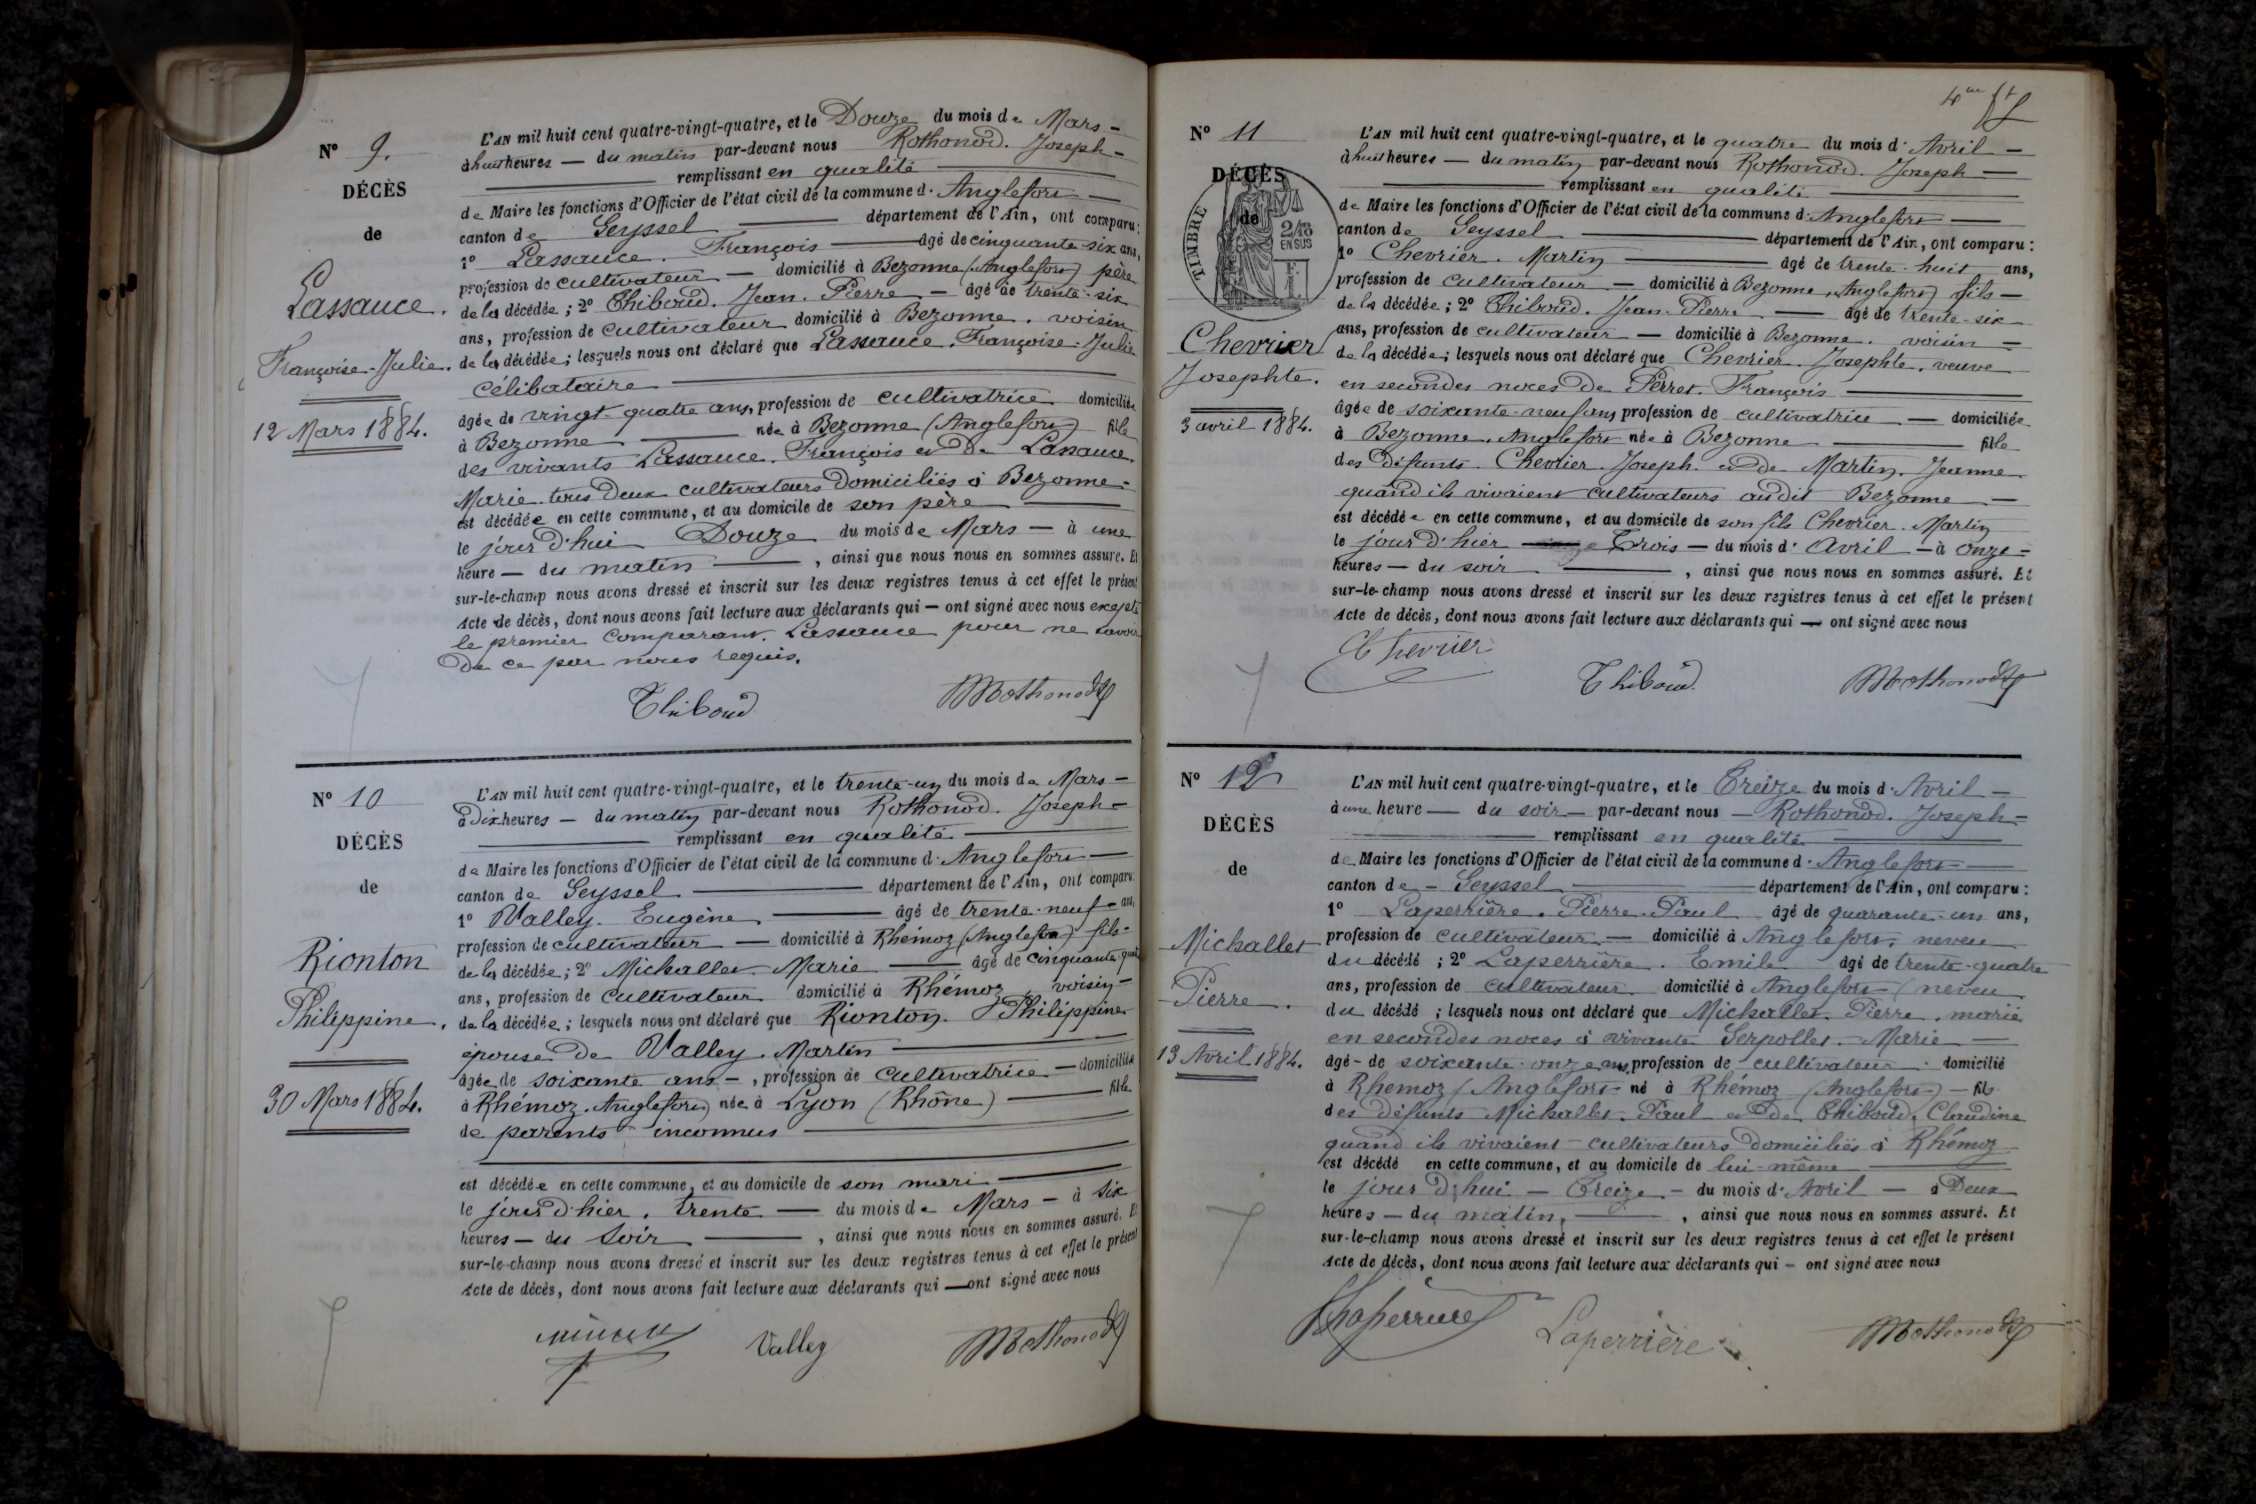 N° 9.
DÉCÈS
de
Lassauce.
Françoise-Julie.
12 Mars 1884.
L'AN mil huit cent quatre-vingt-quatre, et le Douze du mois de Mars —
à huit heures — du matin par-devant nous Rothonod. Joseph —
remplissant en qualité
de Maire les fonctions d'Officier de l'état civil de la commune d. Anglefort —
canton de Seyssel — département de l'Ain, ont comparu:
1° Lassauce. François — âgé de cinquante-six ans,
profession de cultivateur — domicilié à Bezonne (Anglefort) père
de la décédée; 2° Thiboud. Jean. Pierre — âgé de trente-six
ans, profession de cultivateur domicilié à Bezonne. voisin
de la décédée; lesquels nous ont déclaré que Lassauce. Françoise-Julie
célibataire —
âgée de vingt-quatre ans, profession de cultivatrice domiciliée
à Bezonne — née à Bezonne (Anglefort) fille
des vivants Lassauce. François et de Lassauce.
Marie. tous deux cultivateurs domiciliés à Bezonne —
est décédée en cette commune, et au domicile de son père —
le jour d'hui Douze du mois de Mars — à une
heure — du matin — , ainsi que nous nous en sommes assuré. Et
sur-le-champ nous avons dressé et inscrit sur les deux registres tenus à cet effet le présent
Acte de décès, dont nous avons fait lecture aux déclarants qui — ont signé avec nous excepté
le premier comparant. Lassauce pour ne savoir
de ce par nous requis.
Thiboud Rothonod
N° 10
DÉCÈS
de
Rionton
Philippine.
30 Mars 1884.
L'AN mil huit cent quatre-vingt-quatre, et le trente-un du mois de Mars —
à dix heures — du matin par-devant nous Rothonod. Joseph —
remplissant en qualité —
de Maire les fonctions d'Officier de l'état civil de la commune d. Anglefort —
canton de Seyssel — département de l'Ain, ont comparu:
1° Valley. Eugène — âgé de trente-neuf — ans,
profession de cultivateur — domicilié à Rhémoz (Anglefort) fils —
de la décédée; 2° Michallet Marie — âgé de cinquante-quatre
ans, profession de cultivateur domicilié à Rhémoz, voisin —
de la décédée; lesquels nous ont déclaré que Rionton. Philippine
épouse de Valley. Martin —
âgée de soixante ans —, profession de cultivatrice — domiciliée
à Rhémoz. Anglefort) née à Lyon (Rhône) — fille
de parents inconnus —
est décédée en cette commune, et au domicile de son mari —
le jour d'hier. trente — du mois de Mars — à six
heures — du soir — , ainsi que nous nous en sommes assuré. Et
sur-le-champ nous avons dressé et inscrit sur les deux registres tenus à cet effet le présent
Acte de décès, dont nous avons fait lecture aux déclarants qui — ont signé avec nous
Valley Rothonod
4me
N° 11
DÉCÈS
de
TIMBRE
2/10 EN SUS
Chevrier
Josephte.
3 avril 1884.
L'AN mil huit cent quatre-vingt-quatre, et le quatre du mois d. Avril —
à huit heures — du matin par-devant nous Rothonod. Joseph —
remplissant en qualité —
de Maire les fonctions d'Officier de l'état civil de la commune d. Anglefort —
canton de Seyssel — département de l'Ain, ont comparu:
1° Chevrier. Martin — âgé de trente-huit ans,
profession de cultivateur — domicilié à Bezonne, Anglefort) fils —
de la décédée; 2° Thiboud. Jean-Pierre — âgé de trente-six
ans, profession de cultivateur — domicilié à Bezonne. voisin —
de la décédée; lesquels nous ont déclaré que Chevrier. Josephte. veuve
en secondes noces de Perret. François —
âgée de soixante-neuf ans, profession de cultivatrice — domiciliée
à Bezonne. Anglefort née à Bezonne — fille
des défunts. Chevrier. Joseph. et de Martin. Jeanne
quand ils vivaient cultivateurs audit Bezonne —
est décédée en cette commune, et au domicile de son fils Chevrier. Martin
le jour d'hier — Trois — du mois d. Avril — à onze —
heures — du soir — , ainsi que nous nous en sommes assuré. Et
sur-le-champ nous avons dressé et inscrit sur les deux registres tenus à cet effet le présent
Acte de décès, dont nous avons fait lecture aux déclarants qui — ont signé avec nous
Chevrier Thiboud Rothonod
N° 12
DÉCÈS
de
Michallet
Pierre.
13 Avril 1884.
L'AN mil huit cent quatre-vingt-quatre, et le Treize du mois d. Avril —
à une heure — du soir — par-devant nous — Rothonod. Joseph —
remplissant en qualité —
de Maire les fonctions d'Officier de l'état civil de la commune d. Anglefort —
canton de — Seyssel — département de l'Ain, ont comparu:
1° Laperrière. Pierre-Paul âgé de quarante-un ans,
profession de cultivateur — domicilié à Anglefort, neveu
du décédé ; 2° Laperrière. Emile âgé de trente-quatre
ans, profession de cultivateur domicilié à Anglefort (neveu
du décédé ; lesquels nous ont déclaré que Michallet. Pierre. marié
en secondes noces à vivante Serpollet. Marie —
âgé — de soixante-onze ans, profession de cultivateur. domicilié
à Rhémoz (Anglefort — né à Rhémoz (Anglefort) — fils
des défunts Michallet. Paul et de Thiboud. Claudine
quand ils vivaient cultivateurs domiciliés à Rhémoz
est décédé en cette commune, et au domicile de lui-même —
le jour d'hui — Treize — du mois d. Avril — à Deux
heures — du matin, — , ainsi que nous nous en sommes assuré. Et
sur-le-champ nous avons dressé et inscrit sur les deux registres tenus à cet effet le présent
Acte de décès, dont nous avons fait lecture aux déclarants qui — ont signé avec nous
Laperrière Laperrière Rothonod